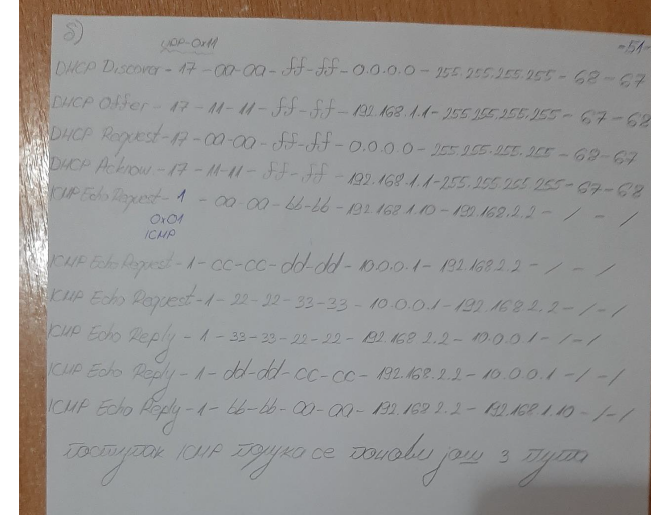 б)
UDP-0x11
-51-
DHCP Discover - 17 - aa-aa - ff-ff - 0.0.0.0 - 255.255.255.255 - 68 - 67
DHCP Offer - 17 - 11-11 - ff-ff - 192.168.1.1 - 255.255.255.255 - 67 - 68
DHCP Request - 17 - aa-aa - ff-ff - 0.0.0.0 - 255.255.255.255 - 68-67
DHCP Acknow - 17 - 11-11 - ff-ff - 192.168.1.1-255.255.255.255 - 67-68
ICMP Echo Request - 1 - aa-aa - bb-bb - 192.168.1.10 - 192.168.2.2 - / - /
0x01
ICMP
ICMP Echo Request - 1 - cc-cc - dd-dd - 10.0.0.1 - 192.168.2.2 - / - /
ICMP Echo Request - 1 - 22-22 - 33-33 - 10.0.0.1 - 192.168.2.2 - / - /
ICMP Echo Reply - 1 - 33-33 - 22-22 - 192.168.2.2 - 10.0.0.1 - / - /
ICMP Echo Reply - 1 - dd-dd - cc-cc - 192.168.2.2 - 10.0.0.1 - / - /
ICMP Echo Reply - 1 - bb-bb - aa-aa - 192.168.2.2 - 192.168.1.10 - / - /
поступак ICMP порука се понови још 3 пута